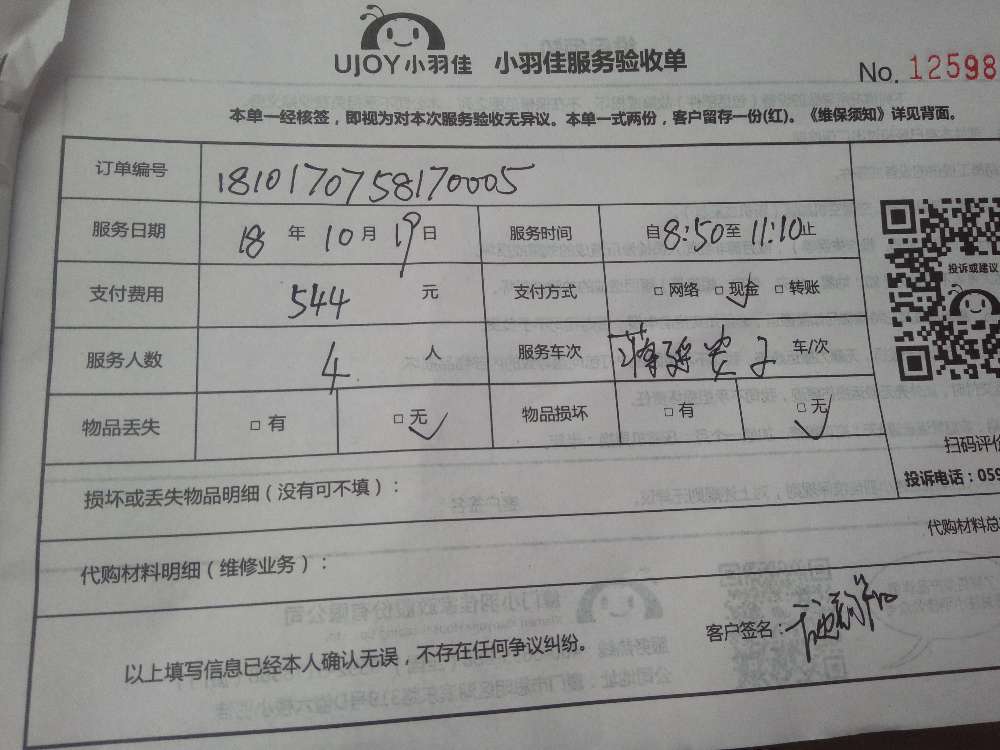 UJOY小羽佳 小羽佳服务验收单
No. 12598
本单一经核签，即视为对本次服务验收无异议。本单一式两份，客户留存一份(红)。《维保须知》详见背面。
订单编号 1810170758170005
服务日期 18 年 10 月 19 日 服务时间 自8:50至11:10止
支付费用 544 元 支付方式 □ 网络 □ 现金 □ 转账
投诉或建议
服务人数 4 人 服务车次 车/次
物品丢失 □ 有 □ 无 物品损坏 □ 有 □ 无
扫码评价
投诉电话：059
损坏或丢失物品明细（没有可不填）：
代购材料总
代购材料明细（维修业务）：
客户签名：
以上填写信息已经本人确认无误，不存在任何争议纠纷。